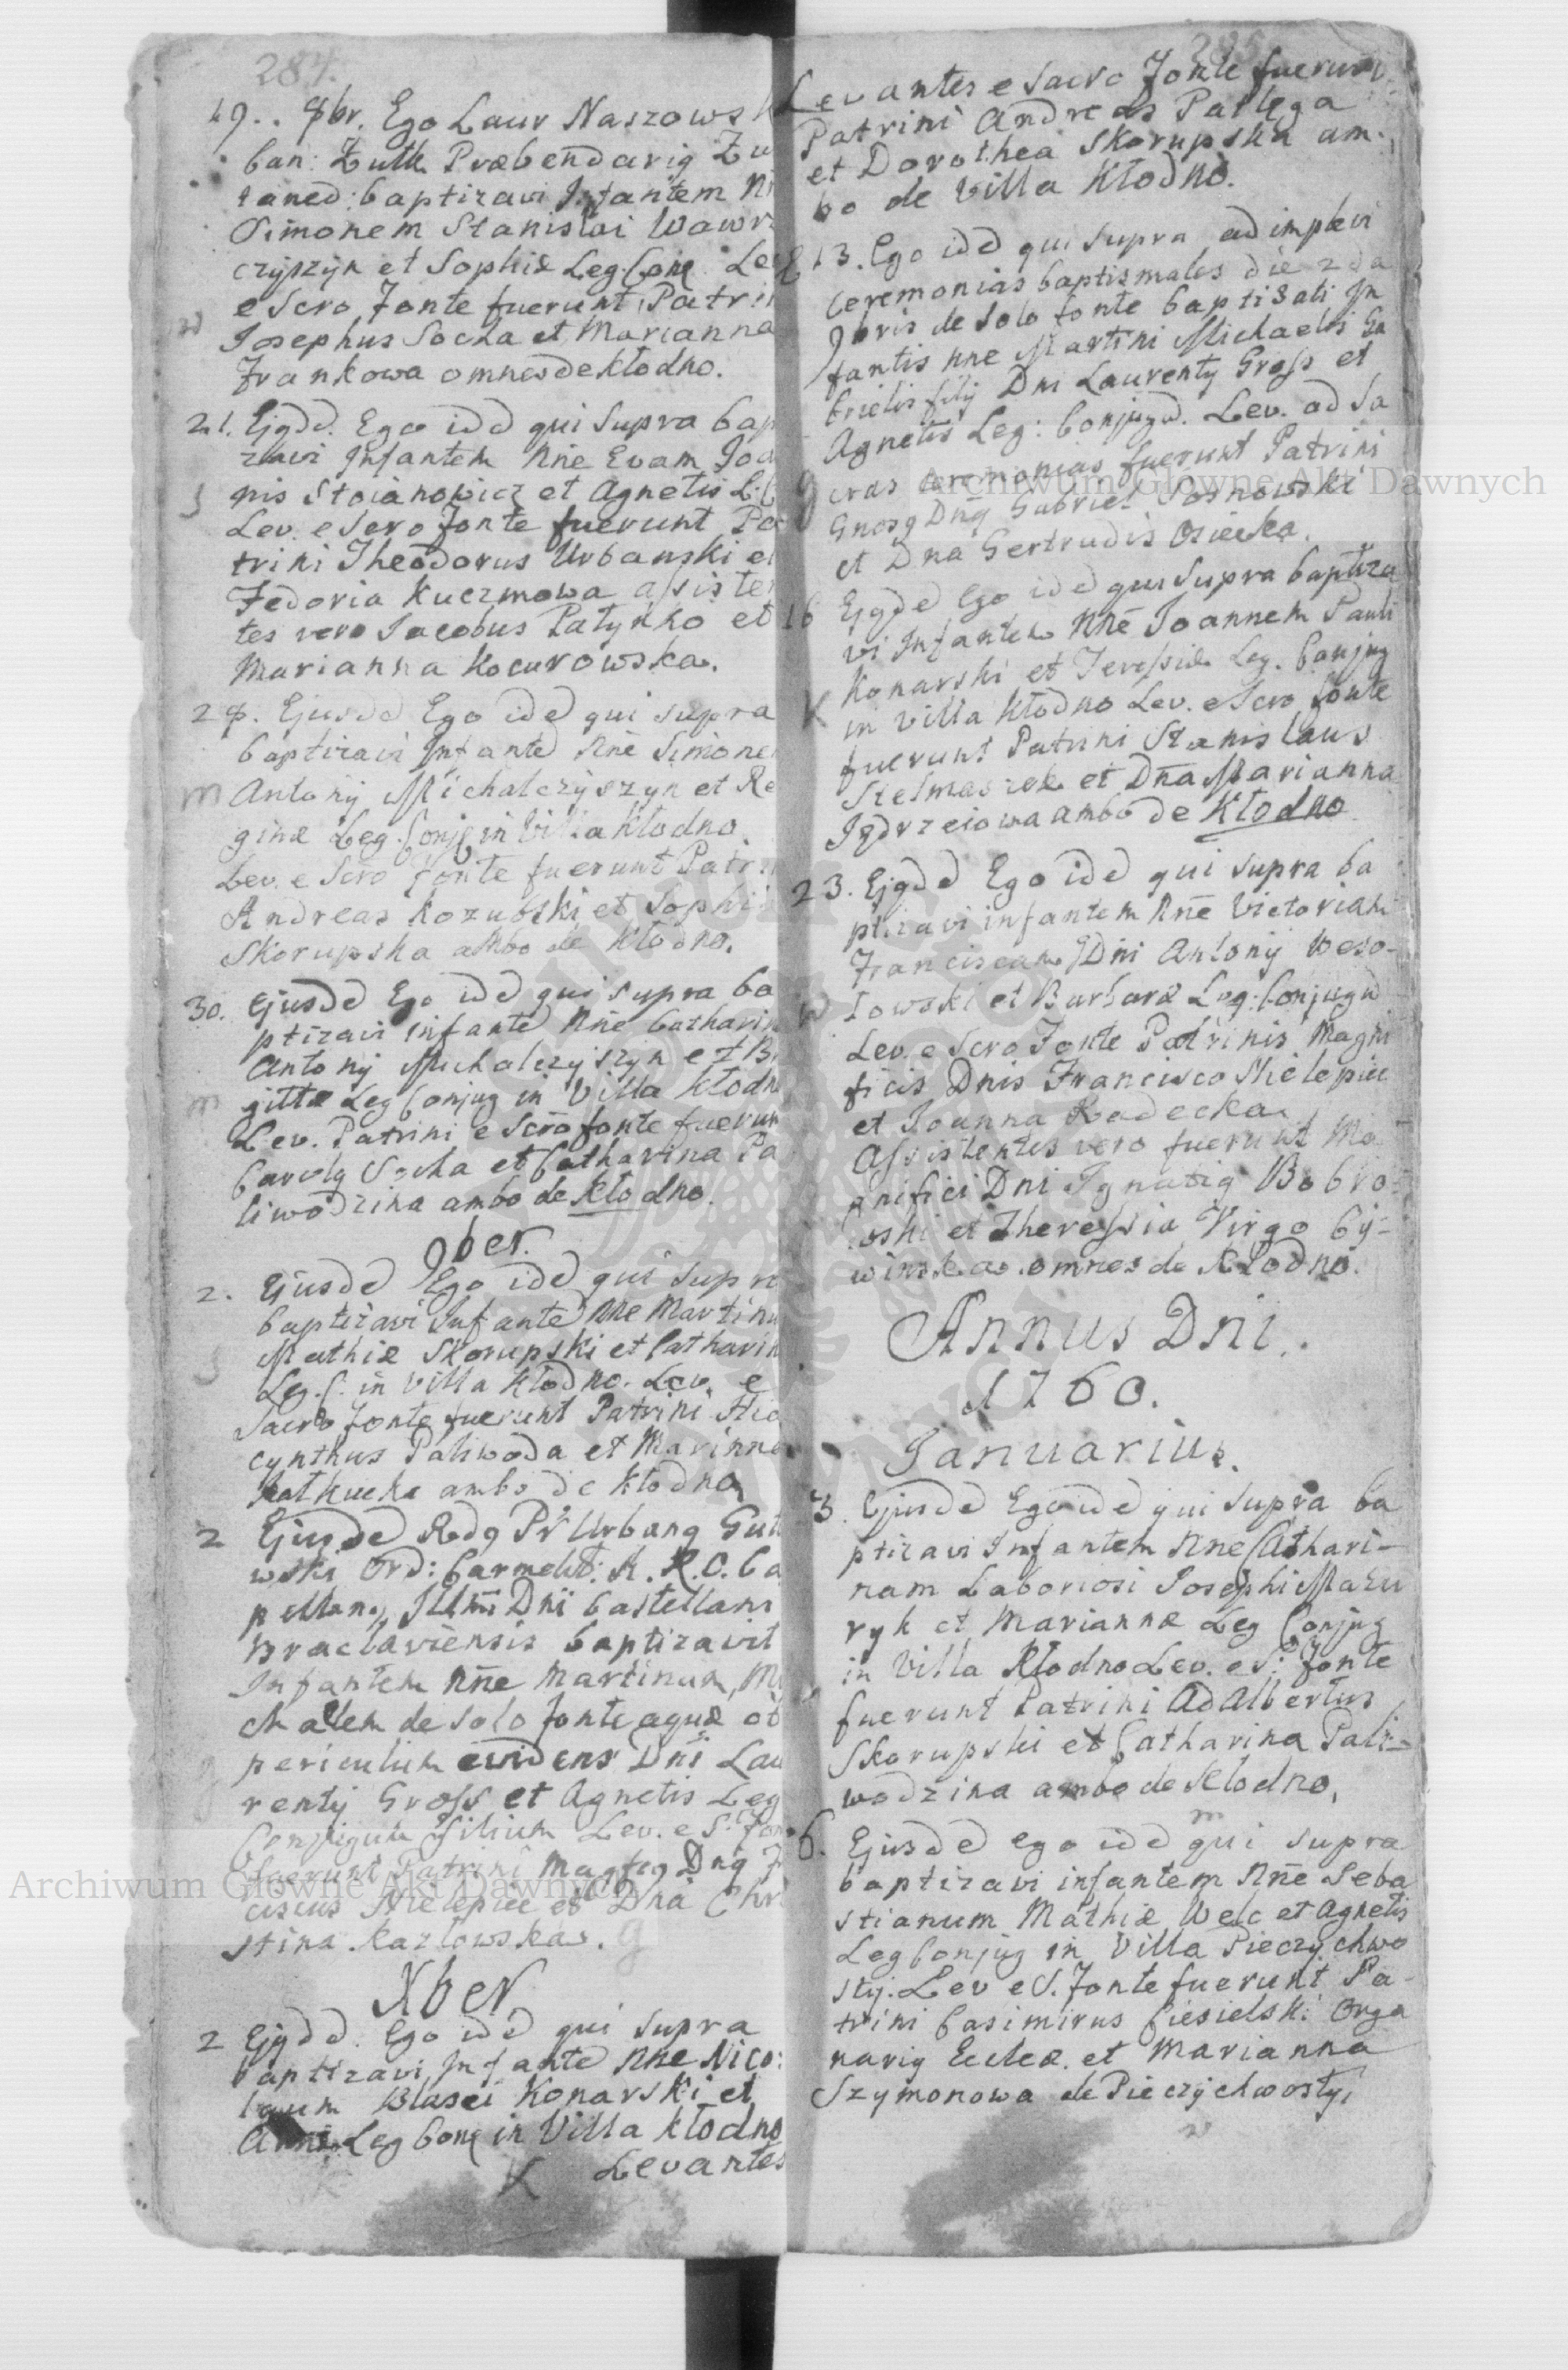 284.
19.. 8br. Ego Laur Naszows
ban: Żułk Præbendariq Żu
taned: baptizavi Infantem N
Simonem Stanislai Wawr
czyszyn et Sophiæ Leg: Conj. Le
e Scro Fonte fuerunt Patri
Josephus Socha et Marianna
Frankowa omnes de Kłodno.
21. Ejqdd. Ego idd qui supra bap
zavi Infantem Nne Evam Joa
nis Stoianowicz et Agnetis L: C
S
Lev. e Scro Fonte fuerunt Pa
trini Theodorus Urbanski et
Fedoria Kuczmowa assiste
tes vero Jacobus Patynko et
Marianna Kocurowska.
28. Ejusdd Ego idd qui supra
baptizavi Infantd Nne Simone
m Antonij Michalczyszyn et Re
ginæ Leg. Conj. in Villa Kłodno
Lev. e Scro Fonte fuerunt Patri
Andreas Kozubski et Sophi
Skorupska ambo de Kłodno.
30. Ejusdd Ego idd qui supra ba
ptizavi Infantd Nne Catharin
Antonij Michalczyszyn et B
m gittæ Leg Conjug in Villa Kłodn
Lev. Patrini e Scro fonte fuerun
Carolq Socha et Catharina Pa
liwodzina ambo de Kłodno.
9ber.
2. Ejusdd Ego idd qui supra
baptizavi Infantd Nne Martinu
Mathiæ Skorupski et Catharin
S
Leg. C. in Villa Kłodno. Lev. e
Sacro Fonte fuerunt Patrini Hia
cynthus Paliwoda et Marinna
ambo de Kłodno
2 Ejusdd Rdq Pr Urbanq Gut
wski Ord: Carmelit: A. R. O. Ca
pellanq Illmi Dni Castellani
Braclaviensis baptizavit
Infantem Nne Martinum, Mi
chalem de solo fonte aquæ ob
periculum evidens Dni Lau
rentij Gross et Agnetis Leg
Conjugum filium Lev. e S. Fon
fuerunt Patrini Magfcq Dnq F
ciscus Nielepiec et Dna Chri
stina Kazlowska. G
Xber
2 Ejqdd. Ego idd qui supra
baptizavi Infantd Nne Nico:
laum Blasei Konarski et
Annæ Leg Conj in Villa Kłodno
K Levantes
285
Levantes e Sacro Fonte fuerunt
Patrini Andreas Pallega
et Dorothea Skorupska am-
bo de Villa Kłodno.
13. Ego idd qui supra adimplevi
ceremonias baptismales die 2da
9bris de solo fonte baptisati In
fantis Nne Martini Michaelis Ga
brielis filij Dni Laurentij Gross et
Agnetis Leg: Conjugd. Lev. ad Sa
G cras ceremonias fuerunt Patrini
Gnosq Dnq Gabriel Sosnowski
et Dna Gertrudis Osiecka.
16 Ejqdd Ego idd qui supra baptiza
vi Infantem Nne Joannem Pauli
Konarski et Teressiæ Leg. Conjug
K in Villa Kłodno Lev. e Scro fonte
fuerunt Patrini Stanislaus
Stelmaszek et Dna Marianna
Jędrzeiowa ambo de Kłodno
23. Ejqdd Ego idd qui supra ba
ptizavi infantem Nne Victoriam
Franciscam Dni Antonij Weso-
W łowski et Barbaræ Leg: Conjugd
Lev. e Scro Fonte Patrinis Magni
ficis Dnis Francisco Nielepiec
et Joanna Radecka
Assistentes vero fuerunt Ma
gnifici Dni Ignatiq Bobro
wski et Theressia Virgo Cy-
winska omnes de Kłodno.
Annus Dni.
1760.
Januarius.
3. Ejusdd Ego idd qui supra ba
ptizavi Infantem Nne Cathari-
nam Laboriosi Josephi Mazu
ryk et Mariannæ Leg Conjug
in Villa Kłodno Lev. e S: Fonte
fuerunt Patrini Adalbertus
Skorupski et Catharina Pali-
wodzina ambo de Kłodno.
m
6. Ejusdd ego idd qui supra
baptizavi infantem Nne Seba
stianum Mathiæ Welc et Agnetis
Leg Conjug in Villa Pieczychwo
sty. Lev e S. Fonte fuerunt Pa
trini Casimirus Ciesielski Orga
nariq Eclæ. et Marianna
Szymonowa de Pieczychwosty.
w
Archiwum Główne Akt Dawnych
Archiwum Główne Akt Dawnych